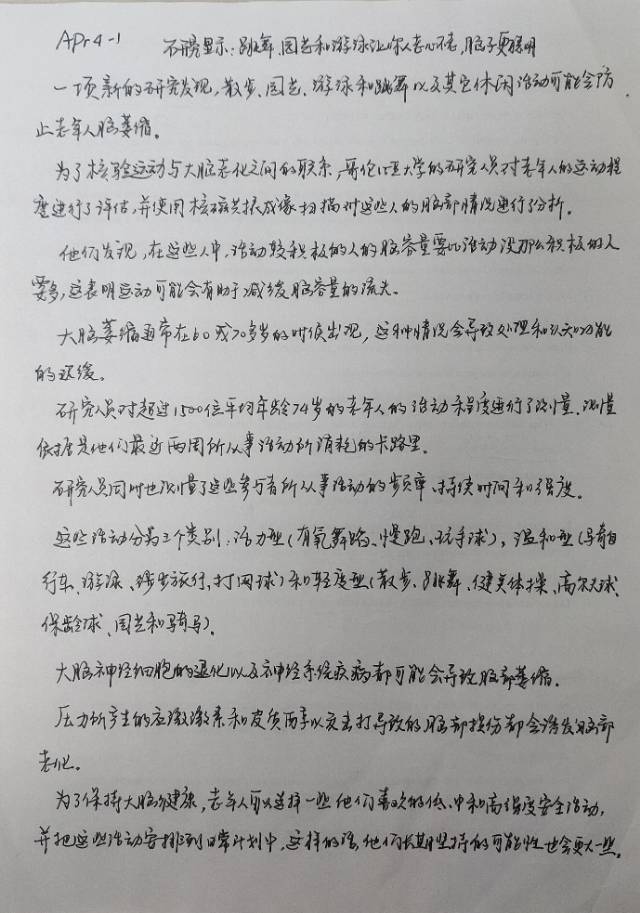 Apr 4-1 研究显示:跳舞、园艺和游泳让你人老心不老,脑子更聪明
一项新的研究发现,散步、园艺、游泳和跳舞以及其它休闲活动可能会防
止老年人脑萎缩。
为了检验运动与大脑老化之间的联系,哥伦比亚大学的研究人员对老年人的运动程
度进行了评估,并使用核磁共振成像扫描对这些人的脑部情况进行了分析。
他们发现,在这些人中,活动较积极的人的脑容量要比活动没那么积极的人
要多,这表明运动可能会有助于减缓脑容量的流失。
大脑萎缩通常在60或70多岁的时候出现,这种情况会导致处理和认知功能
的迟缓。
研究人员对超过1500位平均年龄74岁的老年人的活动程度进行了测量,测量
依据是他们最近两周所从事活动所消耗的卡路里。
研究人员同时也测量了这些参与者所从事活动的频率、持续时间和强度。
这些活动分为三个类别:活力型(有氧舞蹈、慢跑、玩手球),温和型(骑自
行车、游泳、徒步旅行,打网球)和轻度型(散步、跳舞、健美体操、高尔夫球、
保龄球、园艺和骑马)。
大脑神经细胞的退化以及神经系统疾病都可能会导致脑部萎缩。
压力所产生的应激激素和皮质醇以及击打导致的脑部损伤都会诱发脑部
老化。
为了保持大脑健康,老年人可以选择一些他们喜欢的低、中和高强度安全活动,
并把这些活动安排到日常计划中,这样的话,他们长期坚持的可能性也会更大一些。